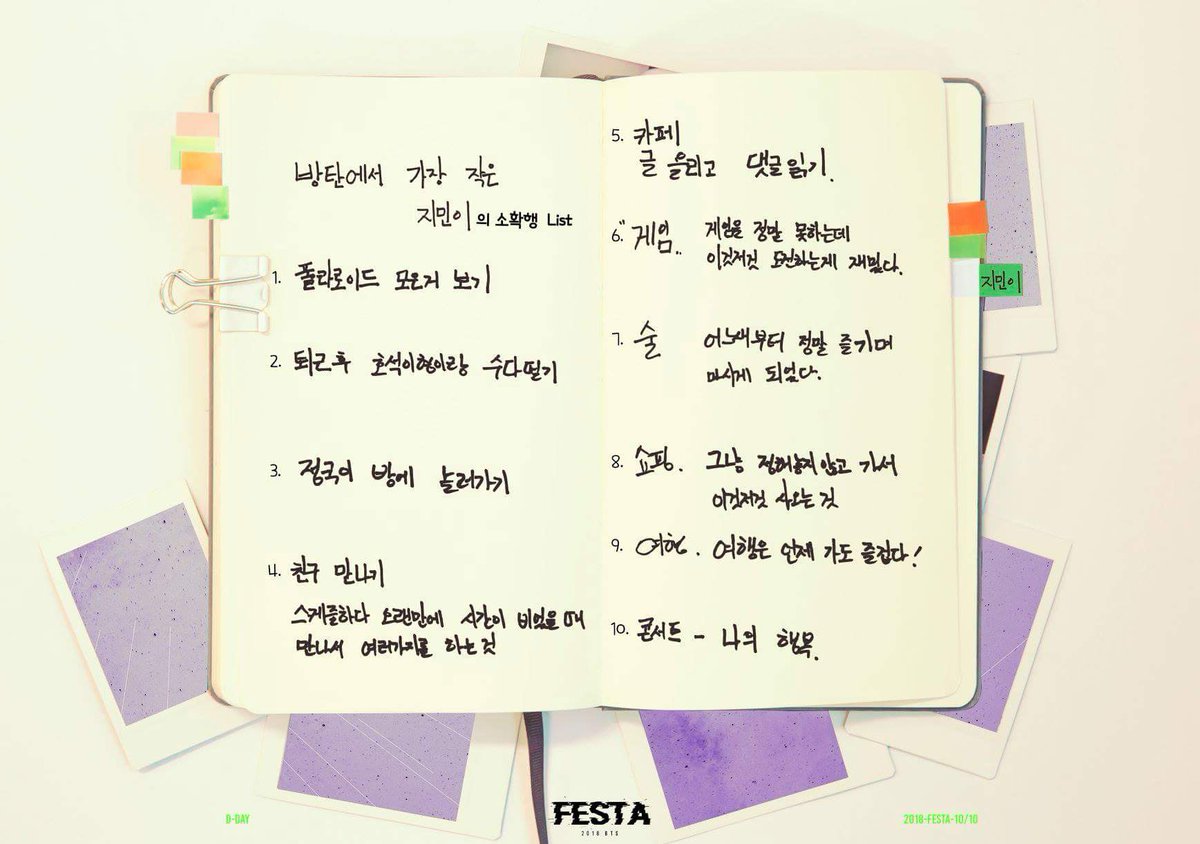 방탄에서 가장 작은
지민이의 소확행 List
1. 폴라로이드 모은거 보기
2. 퇴근후 호석이형이랑 수다떨기
3. 정국이 방에 놀러가기
4. 친구 만나기
스케줄하다 오랜만에 시간이 비었을 때
만나서 여러가지를 하는 것
5. 카페
글 올리고 댓글 읽기.
6. 게임.. 게임을 정말 못하는데
이것저것 도전하는게 재밌다.
7. 술 어느새부터 정말 즐기며
마시게 되었다.
8. 쇼핑. 그냥 정해놓지않고 가서
이것저것 사오는 것
9. 여행. 여행은 언제 가도 즐겁다!
10. 콘서트 - 나의 행복.
지민이
D-DAY
FESTA
2018 BTS
2018-FESTA-10/10